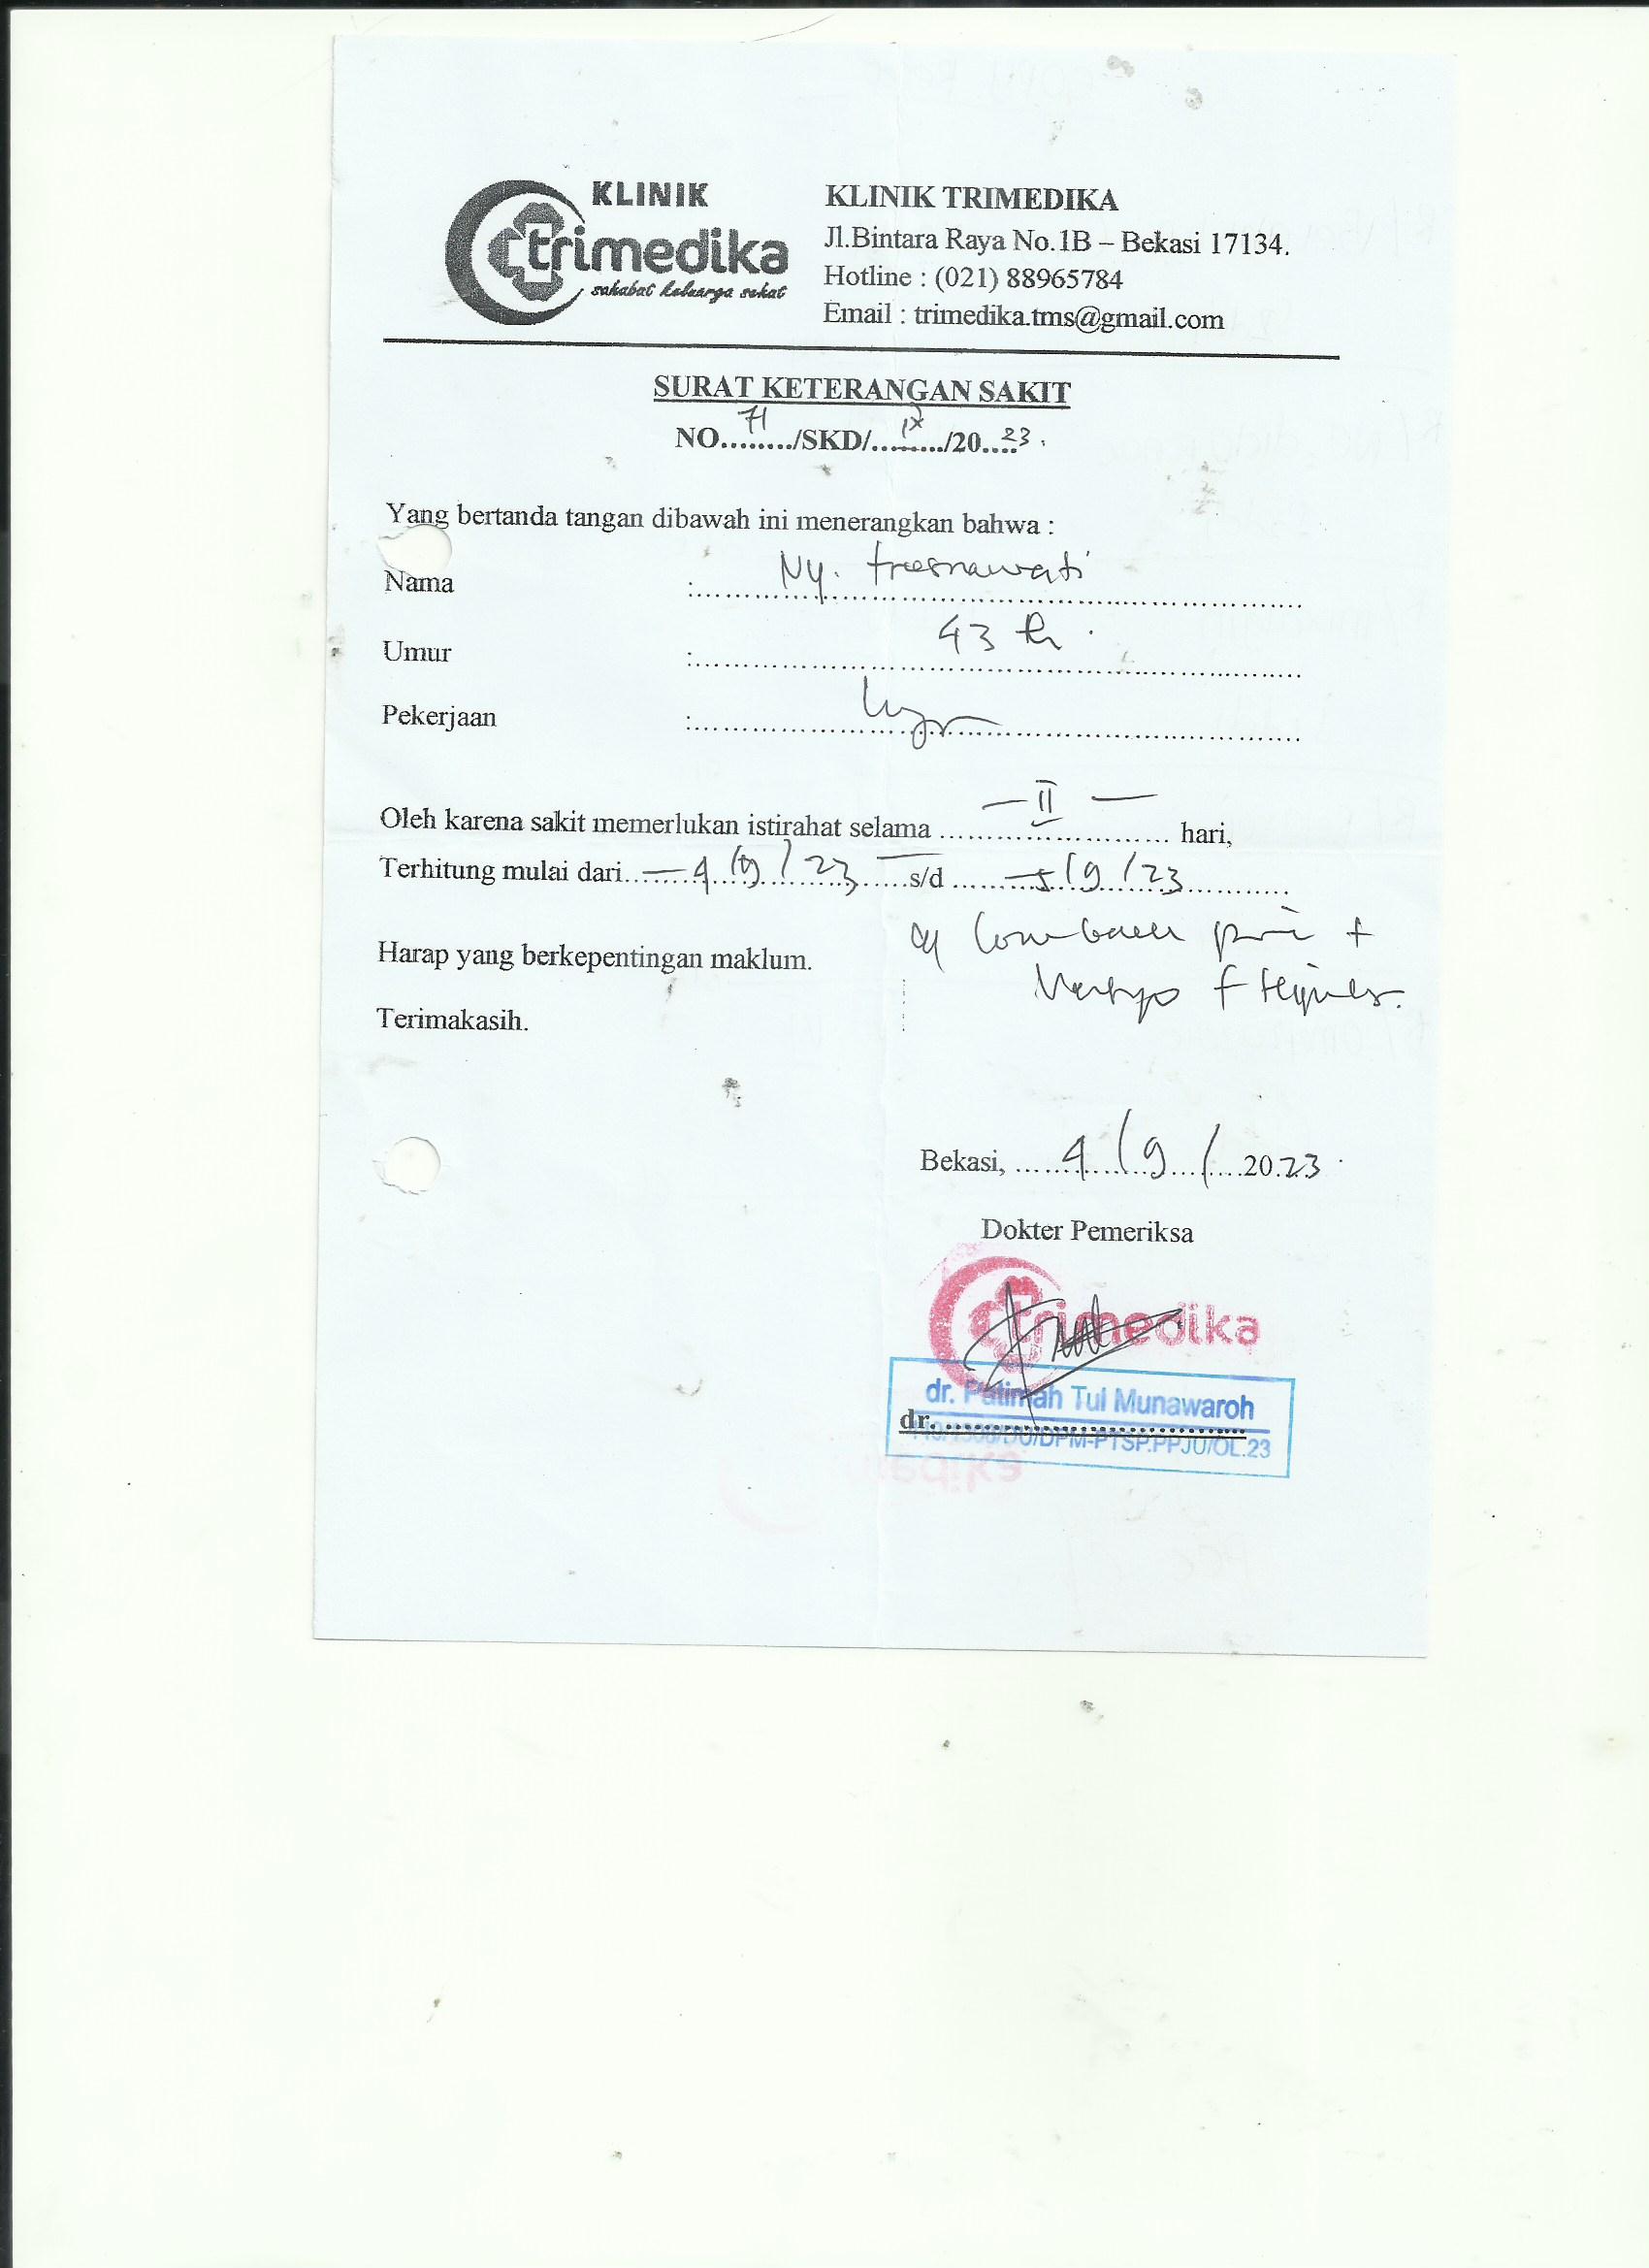 KLINIK
trimedika
sahabat keluarga sehat
KLINIK TRIMEDIKA
Jl.Bintara Raya No.1B – Bekasi 17134.
Hotline : (021) 88965784
Email : trimedika.tms@gmail.com
SURAT KETERANGAN SAKIT
NO...71.../SKD/...IX.../20..23.
Yang bertanda tangan dibawah ini menerangkan bahwa :
Nama : Ny. tresnawati
Umur : 43 th.
Pekerjaan :
Oleh karena sakit memerlukan istirahat selama — II — hari,
Terhitung mulai dari — 4/9/23 — s/d — 5/9/23
Harap yang berkepentingan maklum.
Vertigo
Terimakasih.
Bekasi, 4/9/2023.
Dokter Pemeriksa
trimedika
dr. Fatimah Tul Munawaroh
dr.
/DU/DPM-PTSP.PPJU/OL.23